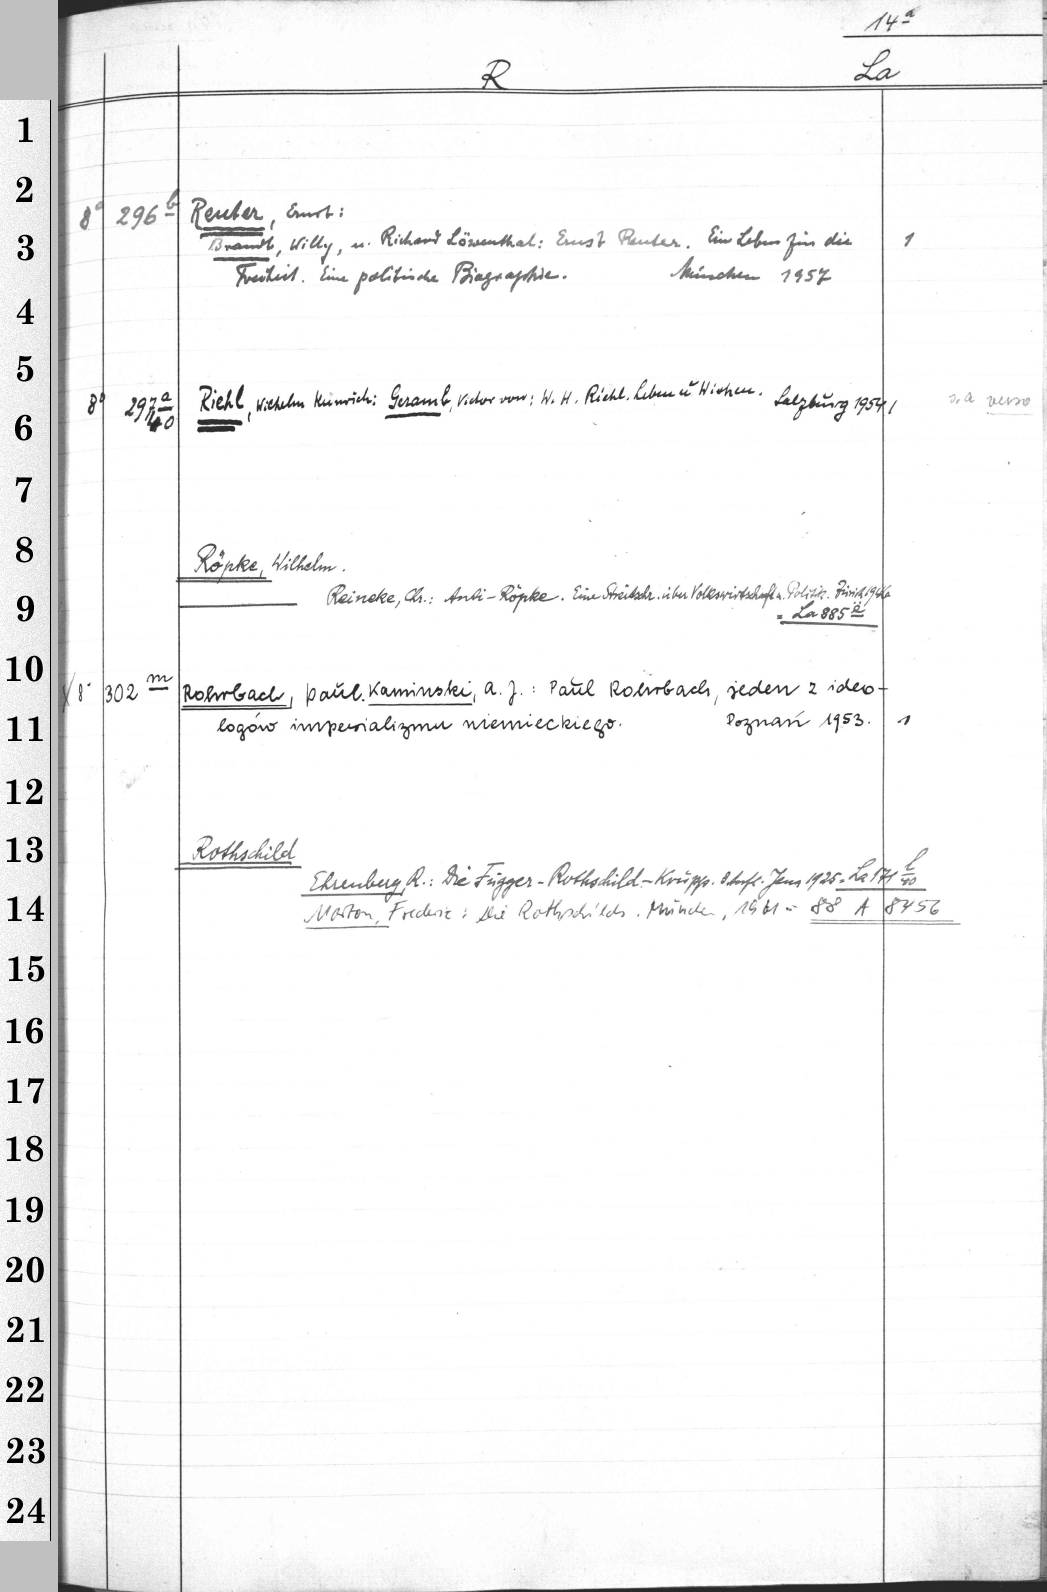 14a
R La
1
2
8° 296 b Reuter, Ernst:
3 Brandt, Willy, u. Richard Löwenthal: Ernst Reuter. Ein Leben für die 1
Freiheit. Eine politische Biographie. München 1957
4
5
8° 297 a/40 Riehl, Wilhelm Heinrich: Geramb, Victor von: W. H. Riehl. Leben u. Wirken. Salzburg 1954 1 s. a verso
6
7
8
Röpke, Wilhelm.
9 Reineke, Ch.: Anti-Röpke. Eine Streitschr. über Volkswirtschaft u. Politik. Zürich
= La 885 a
10
8° 302 m Rohrbach, Paul. Kaminski, A. J.: Paul Rohrbach, jeden z ideo-
11 logów imperializmu niemieckiego. Poznań 1953. 1
12
13 Rothschild
Ehrenberg, R.: Die Fugger-Rothschild-Krupp. 3. Aufl. Jena 1925. = La 171 b/40
14 Morton, Frederic: Die Rothschilds. München, 1961 = 88 A 8456
15
16
17
18
19
20
21
22
23
24